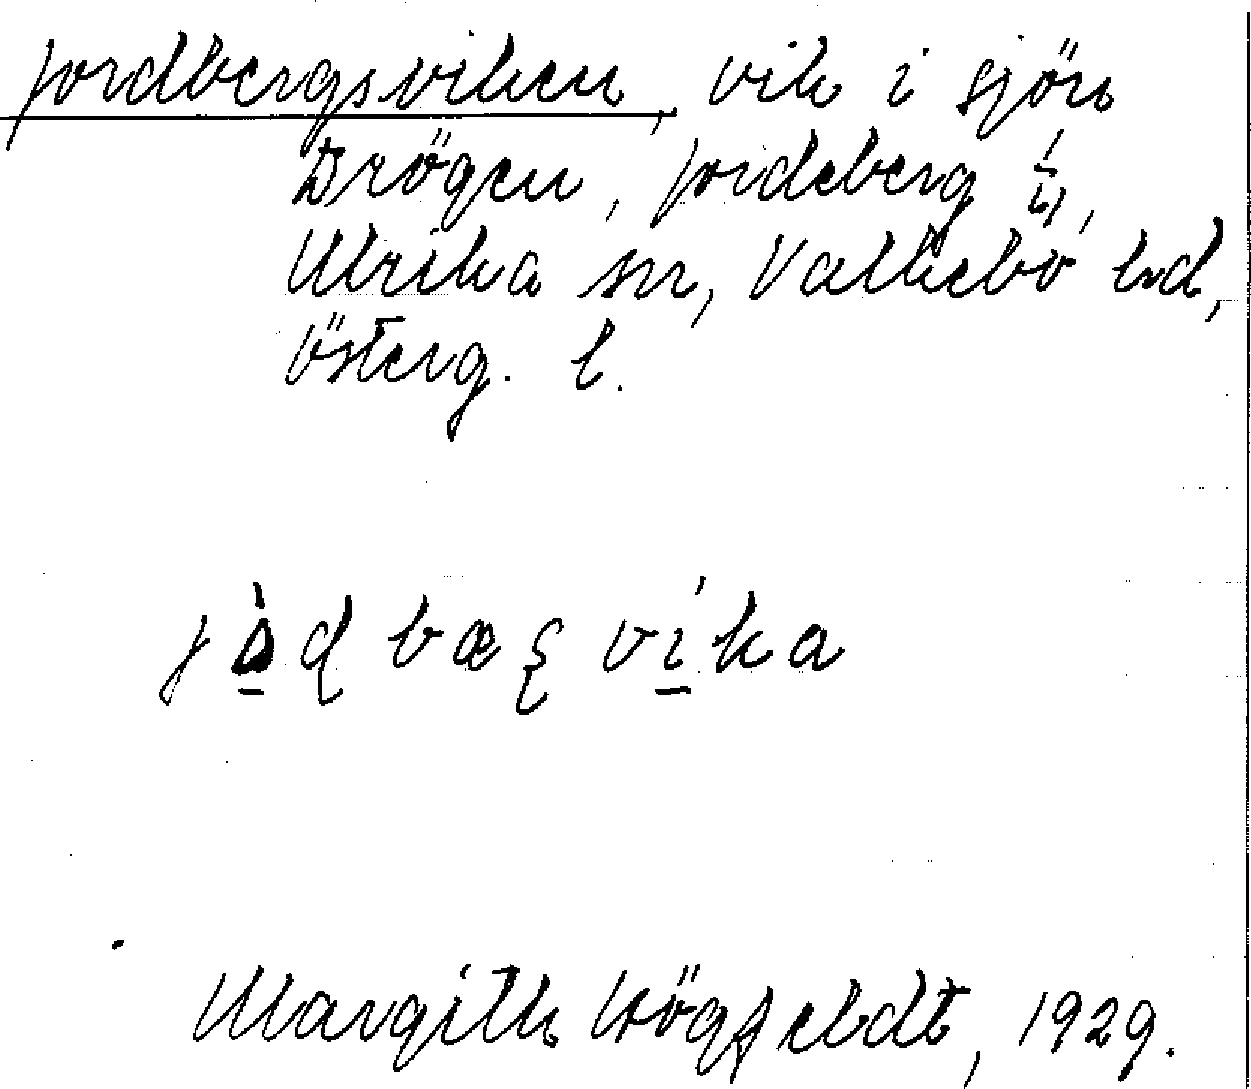 Jordbergsviken, vik i sjön
Drögen, Jordeberg 1/4,
Ulrika sn, Valkebo hd,
Österg. l.
bæ vi̱ka
Margith Högfeldt, 1929.